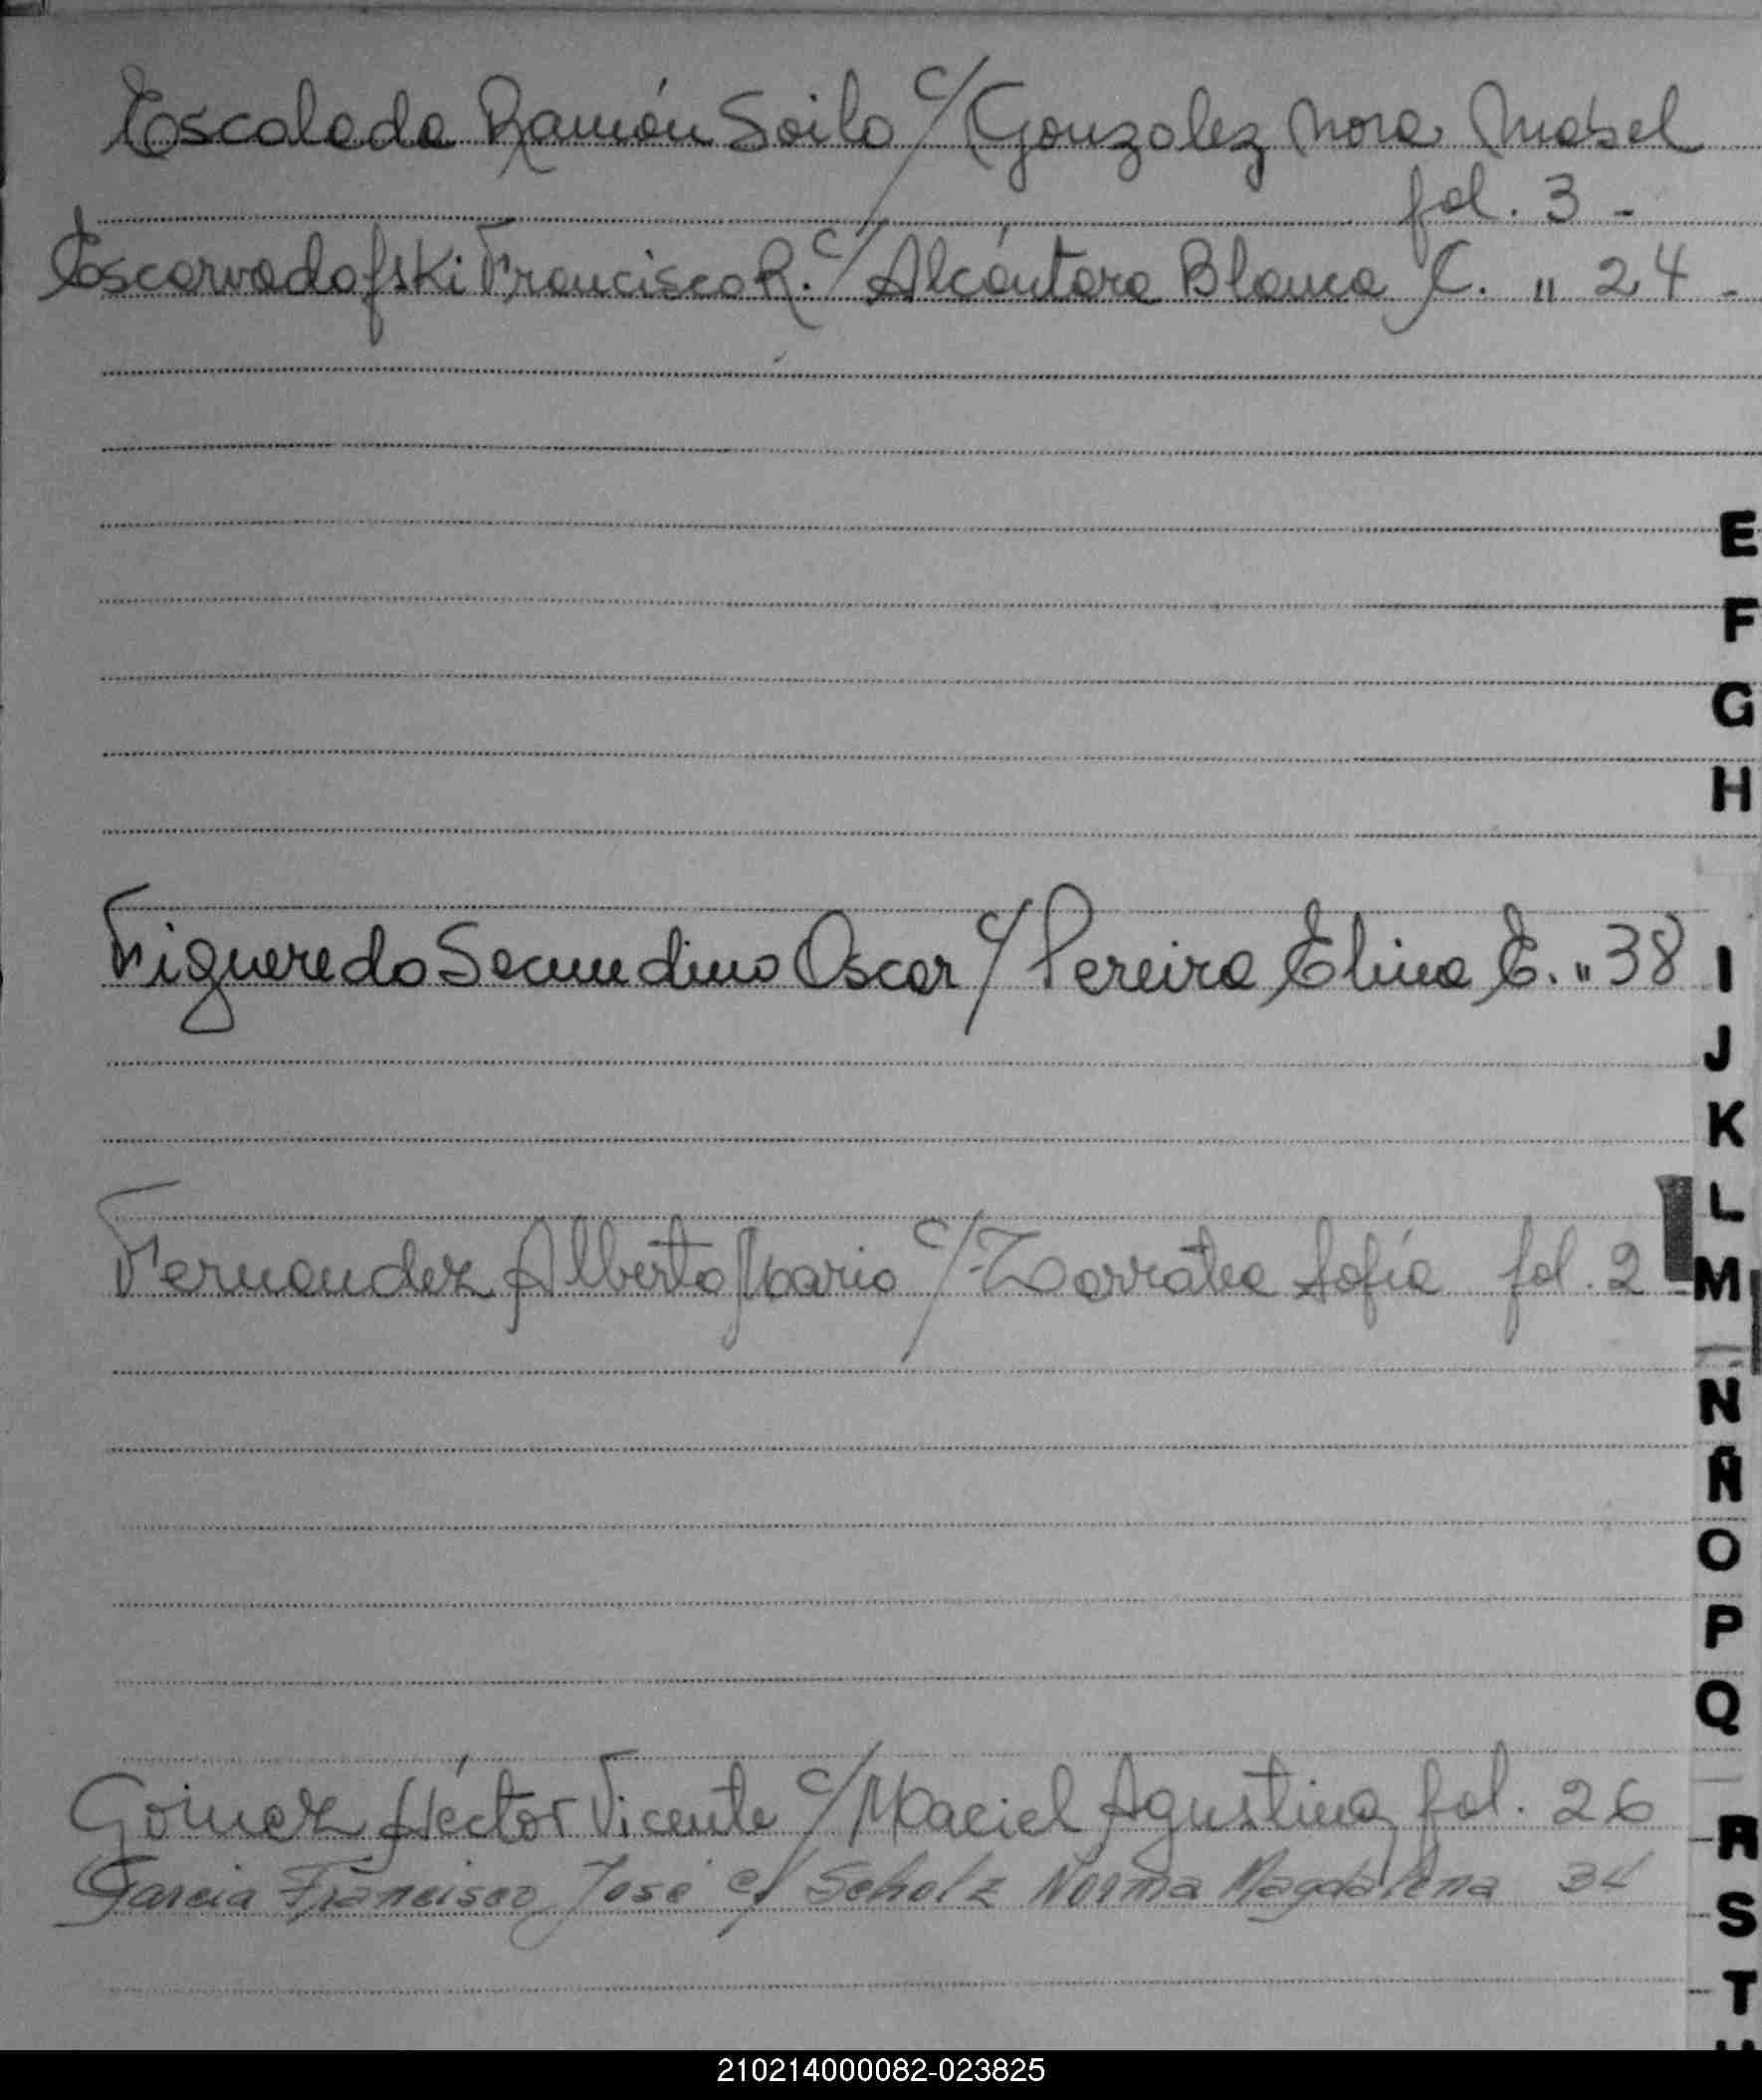 Escalada Ramón Soilo c/ Gonzalez Nora Mabel
fol. 3 -
Escarvadofski Francisco R. c/ Alcántara Blanca C. " 24 -
E
F
G
H
Figueredo Secundino Oscar c/ Pereira Elina E. " 38
I
J
K
L
Fernandez Alberto Mario c/ Zarratea Sofía fol. 2
M
N
Ñ
O
P
Q
Gómez Héctor Vicente c/ Maciel Agustina fol. 26
R
Garcia Francisco José c/ Scholz Norma Magdalena 34
S
T
210214000082-023825